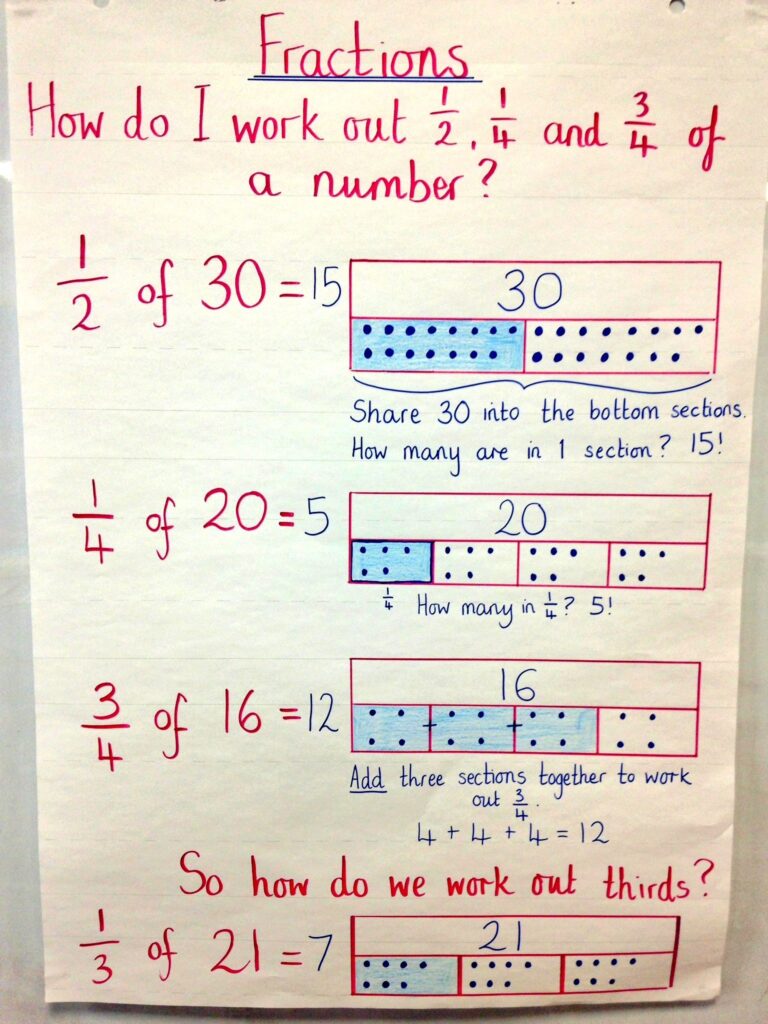 Fractions
How do I work out 1/2, 1/4 and 3/4 of
a number?
1/2 of 30 = 15
30
Share 30 into the bottom sections.
How many are in 1 section? 15!
1/4 of 20 = 5
20
1/4 How many in 1/4? 5!
3/4 of 16 = 12
16
+ +
Add three sections together to work
out 3/4.
4 + 4 + 4 = 12
So how do we work out thirds?
1/3 of 21 = 7
21